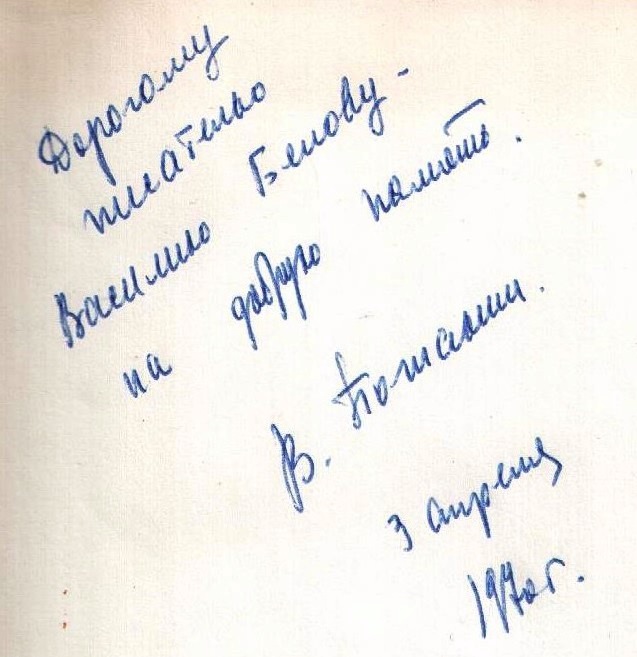 Дорогому
писателю
Василию Белову -
на добрую память.
В. Потанин.
3 апреля
1970 г.